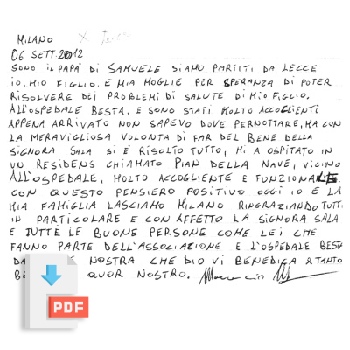 MILANO
06 SETT. 2012
SONO IL PAPA' DI SAMUELE SIAMO PARTITI DA LECCE
IO, MIO FIGLIO, E MIA MOGLIE PER SPERANZA DI POTER
RISOLVERE DEI PROBLEMI DI SALUTE DI MIO FIGLIO,
ALL'OSPEDALE BESTA, E SONO STATI MOLTO ACCOGLIENTI
APPENA ARRIVATO NON SAPEVO DOVE PERNOTTARE, MA CON
LA MERAVIGLIUSA VOLONTA DI FAR DEL BENE DELLA
SIGNORA SALA SI È RISOLTO TUTTO, MI A OSPITATO IN
UN RESIDENS CHIAMATO PIAN DELLA NAVE, VICINO
ALL'OSPEDALE, MOLTO ACCOGLIENTE E FUNZIONALE
CON QUESTO PENSIERO POSITIVO OGGI IO E LA
MIA FAMIGLIA LASCIAMO MILANO RINGRAZIANDO TUTTI
IN PARTICOLARE E CON AFFETTO LA SIGNORA SALA
E TUTTE LE BUONE PERSONE COME LEI CHE
FANNO PARTE DELL'ASSOCIAZIONE E L'OSPEDALE BESTA
DA NOSTRA CHE DIO VI BENEDICA A TANTO
QUOR NOSTRO.
PDF